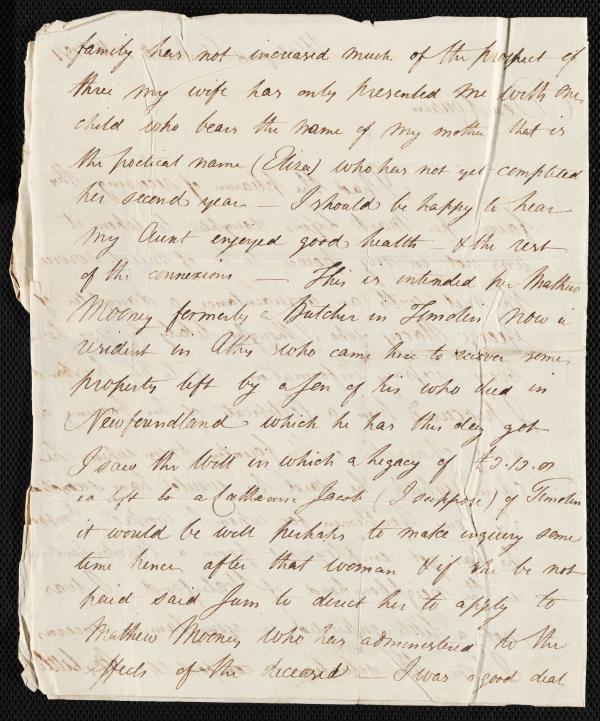 family has not increased much of the prospect of
three my wife has only presented me with one
child who bears the name of my mother that is
the poetical name (Eliza) who has not yet completed
her second year — I should be happy to hear
my Aunt enjoyed good health — & the rest
of the connexions — This is intended per Mathew
Mooney formerly a Butcher in Timolin, now a
resident in Athy who came here to recover some
property left by a Son of his who died in
Newfoundland which he has this day got
I saw the Will in which a legacy of
is left to a Catharine Jacob (I suppose) of Timolin
it would be well perhaps to make inquiry some
time hence after that woman & if she be not
paid said Sum to direct her to apply to
Mathew Mooney who has administered to the
effects of the deceased — I was a good deal